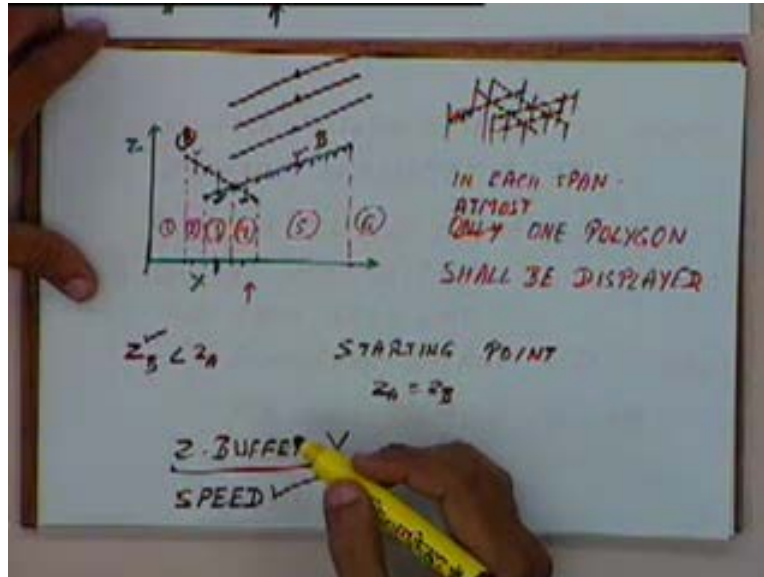 Z
B
① ② ③ ④ ⑤ ⑥
X
IN EACH SPAN
ATMOST
ONE POLYGON
SHALL BE DISPLAYED
Z_B < Z_A
STARTING POINT
Z_A = Z_B
Z-BUFFER
SPEED